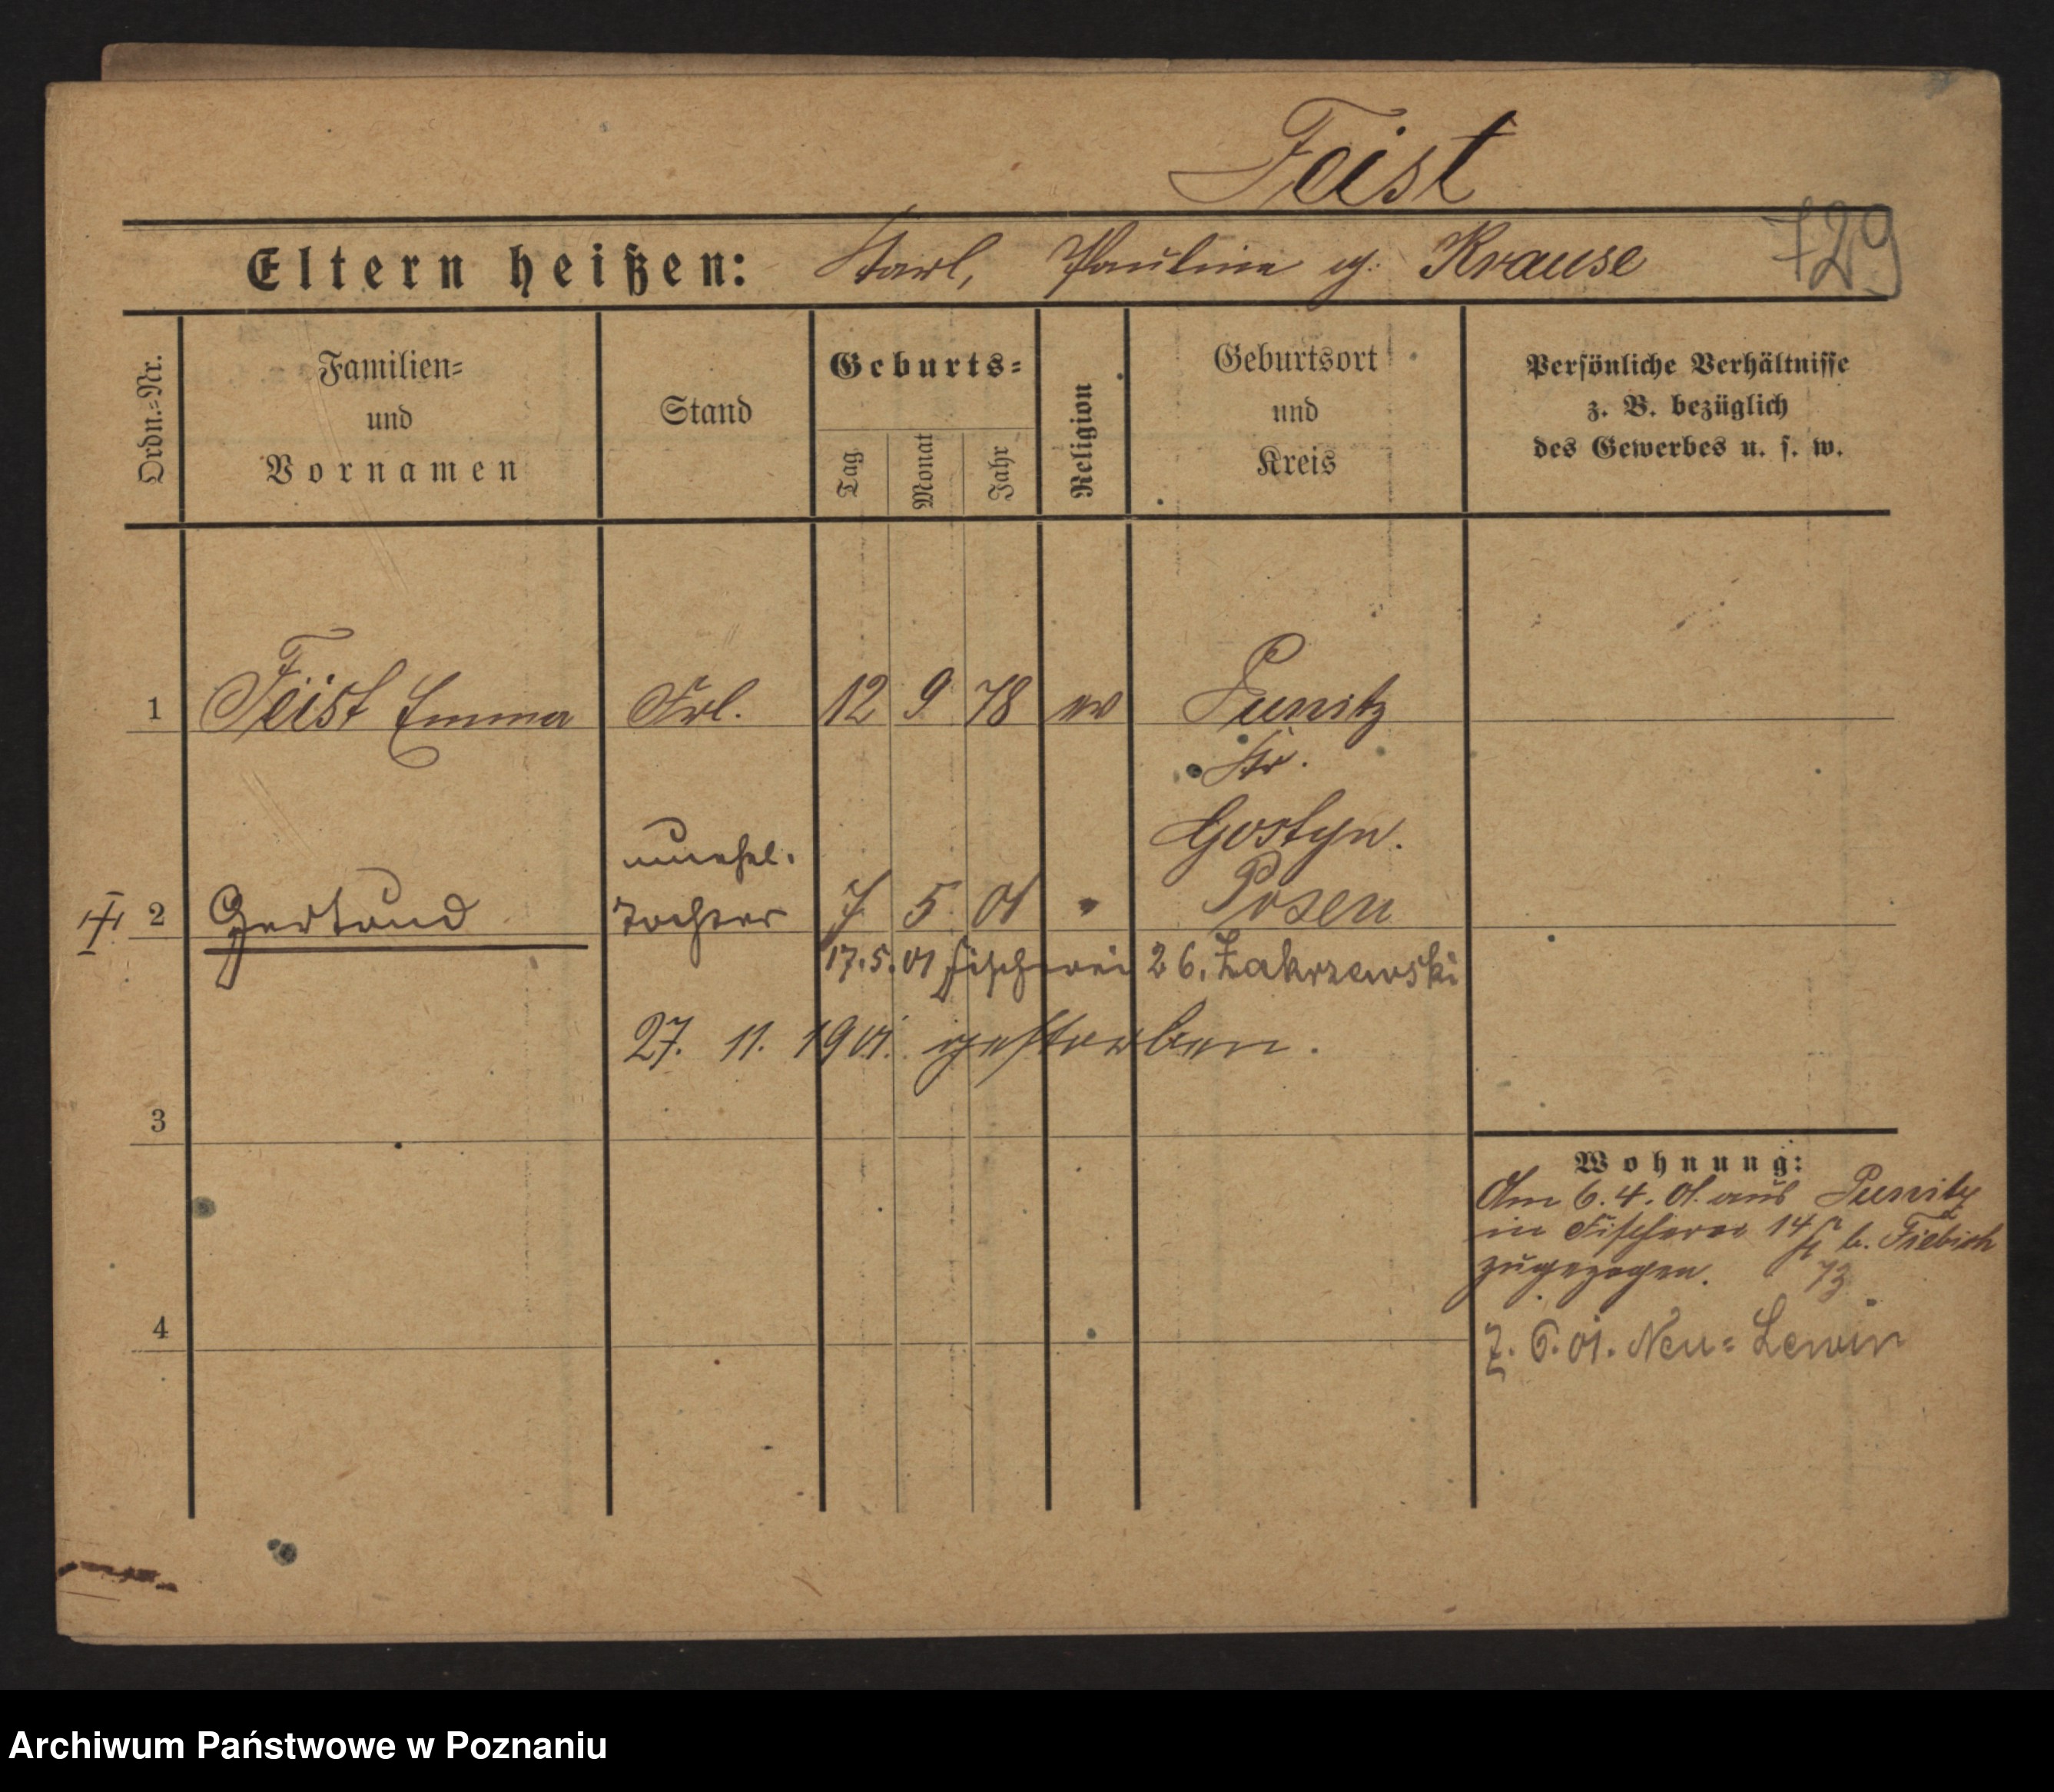 Feist
729
Eltern heißen: Karl, Pauline g. Krause
Ordn.-Nr.
Familien-
und
Vornamen
Stand
Geburts-
Tag
Monat
Jahr
Religion
Geburtsort
und
Kreis
Persönliche Verhältnisse
z. B. bezüglich
des Gewerbes u. s. w.
1 Feist Emma Frl. 12 9 78 ev Punitz
Kr.
Gostyn.
unehel.
2 Gertrud Tochter 7 5 01 " Posen
17.5.01 Fischerei 26. Zakrzewski
27. 11. 1901. gestorben.
3
4
Wohnung:
Am 6.4.01. aus Punitz
in Fischerei 14 b. Fiebich
zugezogen.
7. 6. 01. Neu-Lewin
Archiwum Państwowe w Poznaniu